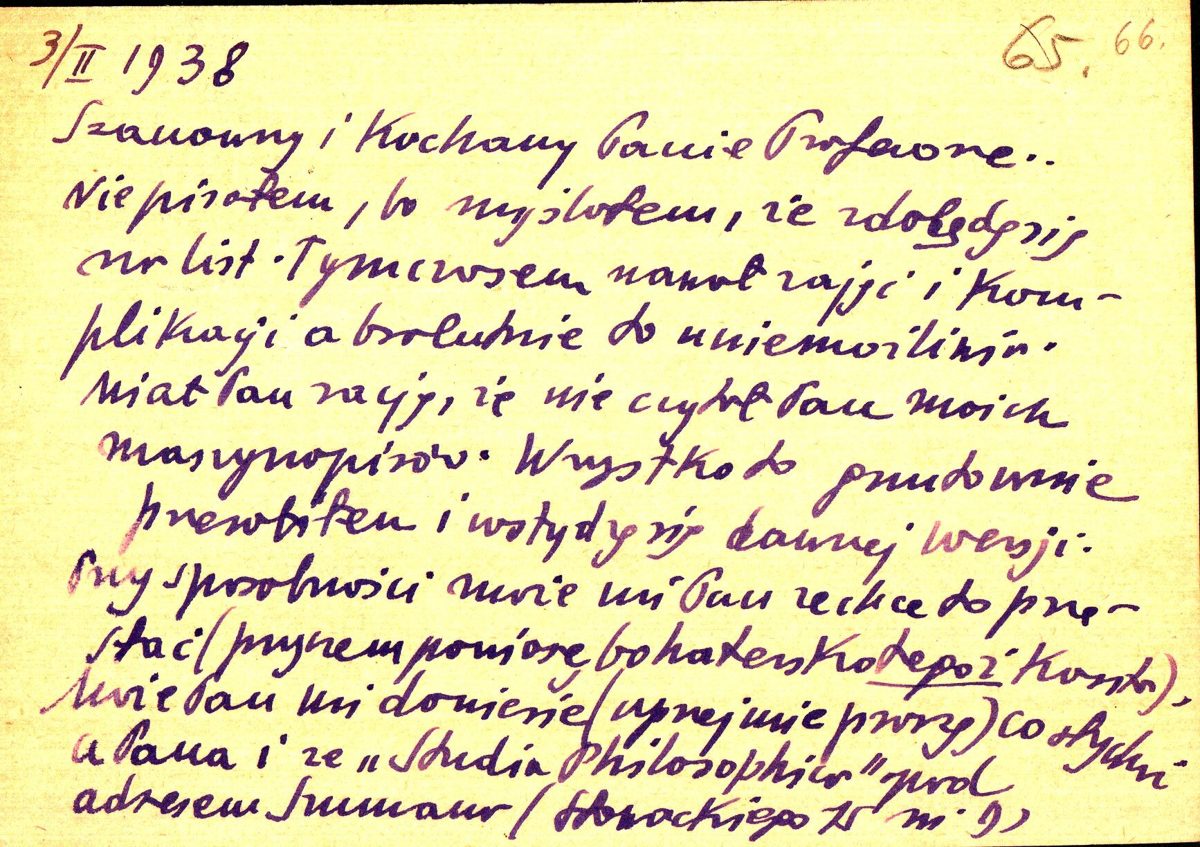 3/II 1938
65. 66.
Szanowny i Kochany Panie Profesorze..
Nie pisałem, bo myślałem, że zdobędę się
na list. Tymczasem nawał zajęć i kom-
plikacji absolutnie to uniemożliwia.
Miał Pan rację, że nie czytał Pan moich
maszynopisów. Wszystko to gruntownie
przerobiłem i wstydzę się dawnej wersji.
Przy sposobności może mi Pan zechce to prze-
słać (przyczem poniosę bohatersko tegoż koszta).
Może Pan mi doniesie (uprzejmie proszę) co słychać
u Pana i ze „Studia Philosophica" pod
adresem Szumana (Słowackiego m. 9)